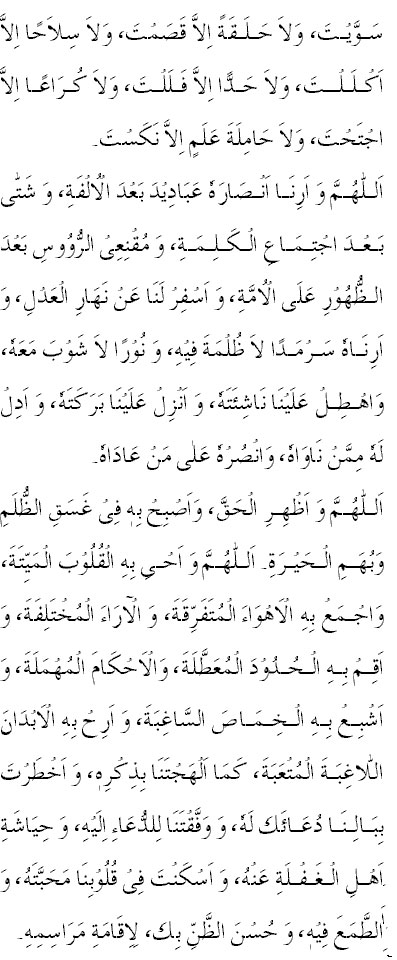 سَوَّيْتَ، وَلاَ حَلَقَةً اِلاَّ قَصَمْتَ، وَلاَ سِلاَحًا اِلاَّ
اَكْلَلْتَ، وَلاَ حَدًّا اِلاَّ فَلَلْتَ، وَلاَ كُرَاعًا اِلاَّ
اجْتَحْتَ، وَلاَ حَامِلَةَ عَلَمٍ اِلاَّ نَكَسْتَ۔
اَللّٰهُمَّ وَ اَرِنَا اَنْصَارَهٗ عَبَادِيْدَ بَعْدَ الْاُلْفَةِ، وَ شَتّٰى
بَعْدَ اجْتِمَاعِ الْكَلِمَةِ، وَ مُقْنِعِى الرُّؤُوسِ بَعْدَ
الظُّهُوْرِ عَلَى الْاُمَّةِ، وَ اَسْفِرْ لَنَا عَنْ نَهَارِ الْعَدْلِ، وَ
اَرِنَاهُ سَرْمَدًا لاَ ظُلْمَةَ فِيْهِ، وَ نُوْرًا لاَ شَوْبَ مَعَهٗ،
وَاهْطِلْ عَلَيْنَا نَاشِئَتَهٗ، وَ اَنْزِلْ عَلَيْنَا بَرَكَتَهٗ، وَ اَدِلْ
لَهٗ مِمَّنْ نَاوَاهُ، وَانْصُرْهُ عَلٰى مَنْ عَادَاهُ۔
اَللّٰهُمَّ وَ اَظْهِرِ الْحَقَّ، وَاَصْبِحْ بِهٖ فِىْ غَسَقِ الظُّلَمِ
وَبُهَمِ الْحَيْرَةِ۔ اَللّٰهُمَّ وَ اَحْىِ بِهِ الْقُلُوْبَ الْمَيِّتَةَ،
وَاجْمَعْ بِهِ الْاَهْوَاءَ الْمُتَفَرِّقَةَ، وَ الْآرَاءَ الْمُخْتَلِفَةَ، وَ
اَقِمْ بِهِ الْحُدُوْدَ الْمُعَطَّلَةَ، وَالْاَحْكَامَ الْمُهْمَلَةَ، وَ
اَشْبِعْ بِهِ الْخِمَاصَ السَّاغِبَةَ، وَ اَرِحْ بِهِ الْاَبْدَانَ
اللَّاغِبَةَ الْمُتْعَبَةَ، كَمَا اَلْهَجْتَنَا بِذِكْرِهٖ، وَ اَخْطَرْتَ
بِبَالِنَا دُعَائَكَ لَهٗ، وَ وَفَّقْتَنَا لِلدُّعَاءِ اِلَيْهِ، وَ حِيَاشَةِ
اَهْلِ الْغَفْلَةِ عَنْهُ، وَ اَسْكَنْتَ فِىْ قُلُوْبِنَا مَحَبَّتَهٗ، وَ
الطَّمَعَ فِيْهِ، وَ حُسْنَ الظَّنِّ بِكَ، لِاِقَامَةِ مَرَاسِمِهٖ۔